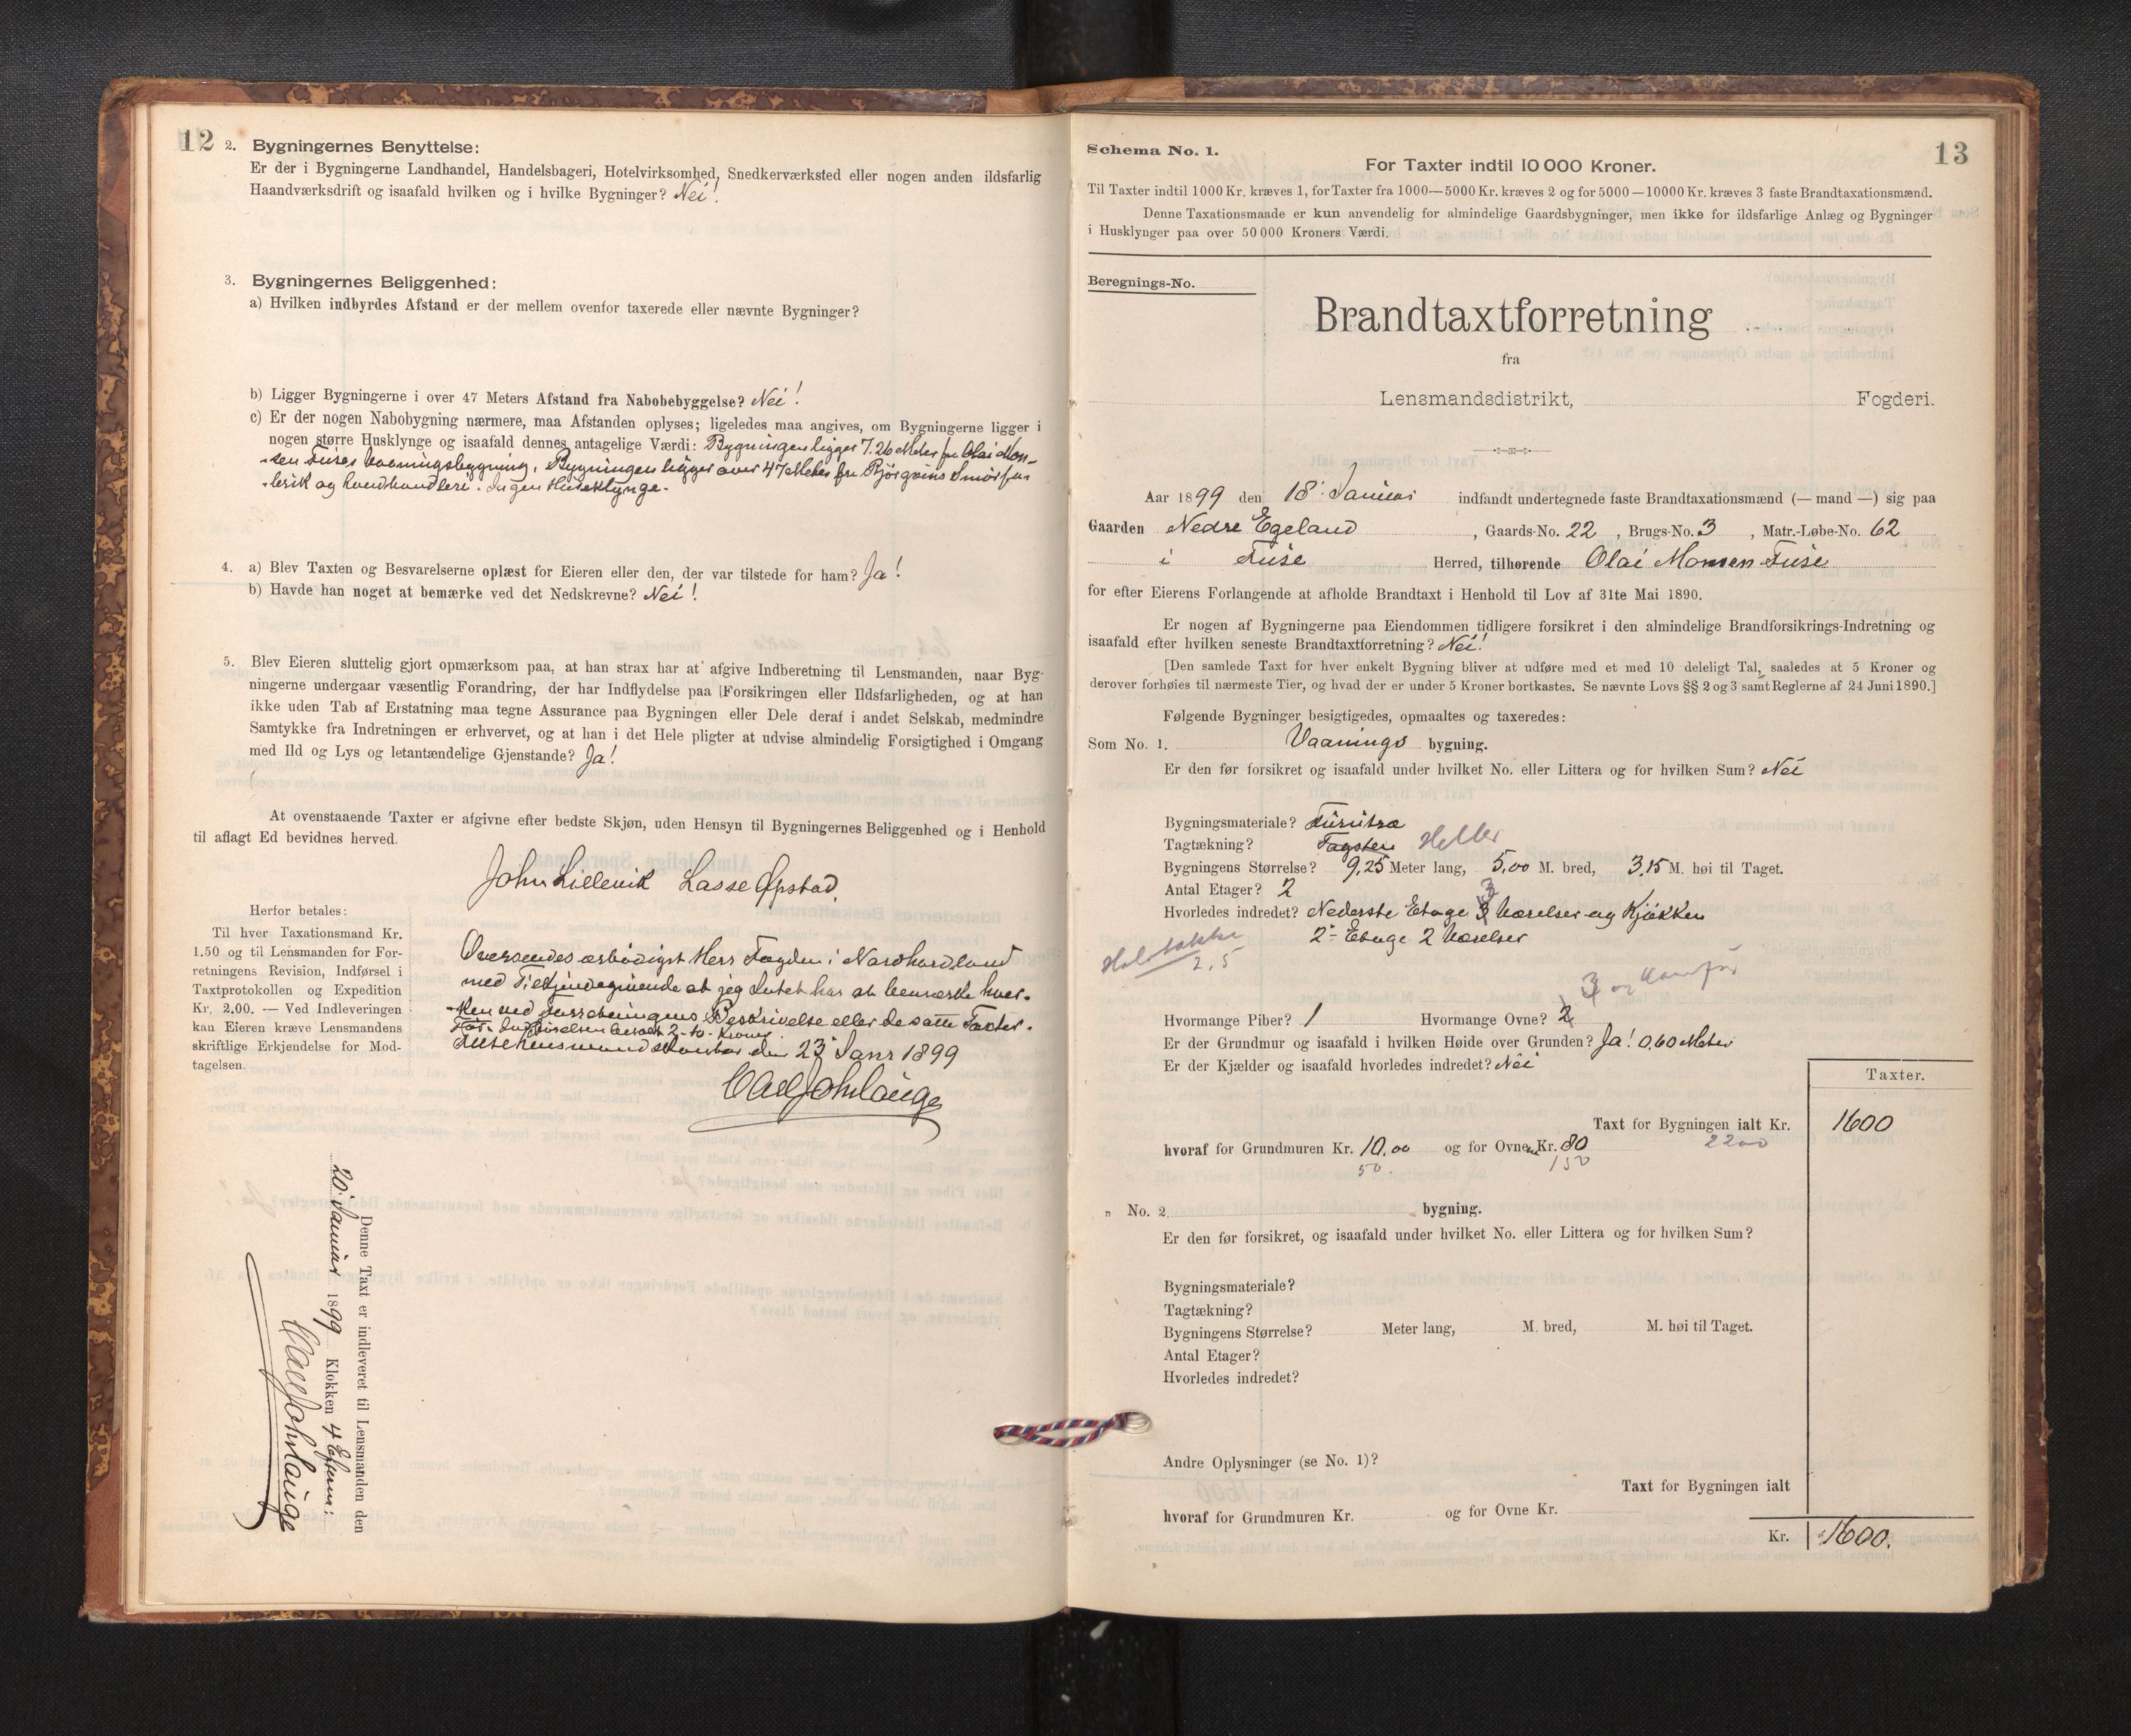 12
2. Bygningernes Benyttelse:
Er der i Bygningerne Landhandel, Handelsbageri, Hotelvirksomhed, Snedkerværksted eller nogen anden ildsfarlig
Haandværksdrift og isaafald hvilken og i hvilke Bygninger? Nei!
3. Bygningernes Beliggenhed:
a) Hvilken indbyrdes Afstand er der mellem ovenfor taxerede eller nævnte Bygninger?
b) Ligger Bygningerne i over 47 Meters Afstand fra Nabobebyggelse? Nei!
c) Er der nogen Nabobygning nærmere, maa Afstanden oplyses; ligeledes maa angives, om Bygningerne ligger i
nogen større Husklynge og isaafald dennes antagelige Værdi: Bygningen ligger 7.26 Meter fra Olai Mon-
sen Fuses Vaaningsbygning. Bygningen ligger over 47 Meter fra Bjørgvins Smørfa-
brik og Landhandleri. Ingen Husklynge.
4. a) Blev Taxten og Besvarelserne oplæst for Eieren eller den, der var tilstede for ham? Ja!
b) Havde han noget at bemærke ved det Nedskrevne? Nei!
5. Blev Eieren sluttelig gjort opmærksom paa, at han strax har at afgive Indberetning til Lensmanden, naar Byg-
ningerne undergaar væsentlig Forandring, der har Indflydelse paa Forsikringen eller Ildsfarligheden, og at han
ikke uden Tab af Erstatning maa tegne Assurance paa Bygningen eller Dele deraf i andet Selskab, medmindre
Samtykke fra Indretningen er erhvervet, og at han i det Hele pligter at udvise almindelig Forsigtighed i Omgang
med Ild og Lys og letantændelige Gjenstande? Ja!
At ovenstaaende Taxter er afgivne efter bedste Skjøn, uden Hensyn til Bygningernes Beliggenhed og i Henhold
til aflagt Ed bevidnes herved.
John Lillevik Lasse Opstad
Herfor betales:
Til hver Taxationsmand Kr.
1.50 og til Lensmanden for For-
retningens Revision, Indførsel i
Taxtprotokollen og Expedition
Kr. 2.00. — Ved Indleveringen
kan Eieren kræve Lensmandens
skriftlige Erkjendelse for Mod-
tagelsen.
Oversendes ærbødigst Herr Fogden i Nordhordland
med Tilkjendegivende at jeg Intet har at bemærke hver-
ken ved Forretningens Beskrivelse eller de satte Taxter.
For Indførselen betalt 2-to-Kroner
Fuse Lensmandskontor den 23 Janr 1899
Carl Joh Lange
Denne Taxt er indleveret til Lensmanden den
20. Januar 1899 Klokken 4 Efterm:
Carl Joh Lange
13
Schema No. 1.
For Taxter indtil 10 000 Kroner.
Til Taxter indtil 1000 Kr. kræves 1, for Taxter fra 1000—5000 Kr. kræves 2 og for 5000—10000 Kr. kræves 3 faste Brandtaxationsmænd.
Denne Taxationsmaade er kun anvendelig for almindelige Gaardsbygninger, men ikke for ildsfarlige Anlæg og Bygninger
i Husklynger paa over 50 000 Kroners Værdi.
Beregnings-No.
Brandtaxtforretning
fra
Lensmandsdistrikt, Fogderi.
Aar 1899 den 18' Januar indfandt undertegnede faste Brandtaxationsmænd (— mand —) sig paa
Gaarden Nedre Egeland, Gaards-No. 22, Brugs-No. 3, Matr.-Løbe-No. 62
i Fuse Herred, tilhørende Olai Monsen Fuse
for efter Eierens Forlangende at afholde Brandtaxt i Henhold til Lov af 31te Mai 1890.
Er nogen af Bygningerne paa Eiendommen tidligere forsikret i den almindelige Brandforsikrings-Indretning og
isaafald efter hvilken seneste Brandtaxtforretning? Nei!
[Den samlede Taxt for hver enkelt Bygning bliver at udføre med et med 10 deleligt Tal, saaledes at 5 Kroner og
derover forhøies til nærmeste Tier, og hvad der er under 5 Kroner bortkastes. Se nævnte Lovs §§ 2 og 3 samt Reglerne af 24 Juni 1890.]
Følgende Bygninger besigtigedes, opmaaltes og taxeredes:
Som No. 1. Vaanings bygning.
Er den før forsikret og isaafald under hvilket No. eller Littera og for hvilken Sum? Nei
Bygningsmateriale? Furutræ
Tagtækning? Tagsten Heller
Bygningens Størrelse? 9,25 Meter lang, 5,00 M. bred, 3,15 M. høi til Taget.
Antal Etager? 2
Hvorledes indredet? Nederste Etage 3 Værelser og Kjøkken
2- Etage 2 Værelser
2,5
3 og Komfur
Hvormange Piber? 1 Hvormange Ovne? 2
Er der Grundmur og isaafald i hvilken Høide over Grunden? Ja! 0,60 Meter
Er der Kjælder og isaafald hvorledes indredet? Nei
Taxter.
Taxt for Bygningen ialt Kr. 1600
2200
hvoraf for Grundmuren Kr. 10,00 og for Ovnene Kr. 80
50. 150
" No. 2 bygning.
Er den før forsikret, og isaafald under hvilket No. eller Littera og for hvilken Sum?
Bygningsmateriale?
Tagtækning?
Bygningens Størrelse? Meter lang, M. bred, M. høi til Taget.
Antal Etager?
Hvorledes indredet?
Andre Oplysninger (se No. 1)?
Taxt for Bygningen ialt
hvoraf for Grundmuren Kr. og for Ovne Kr.
Kr. 1600.